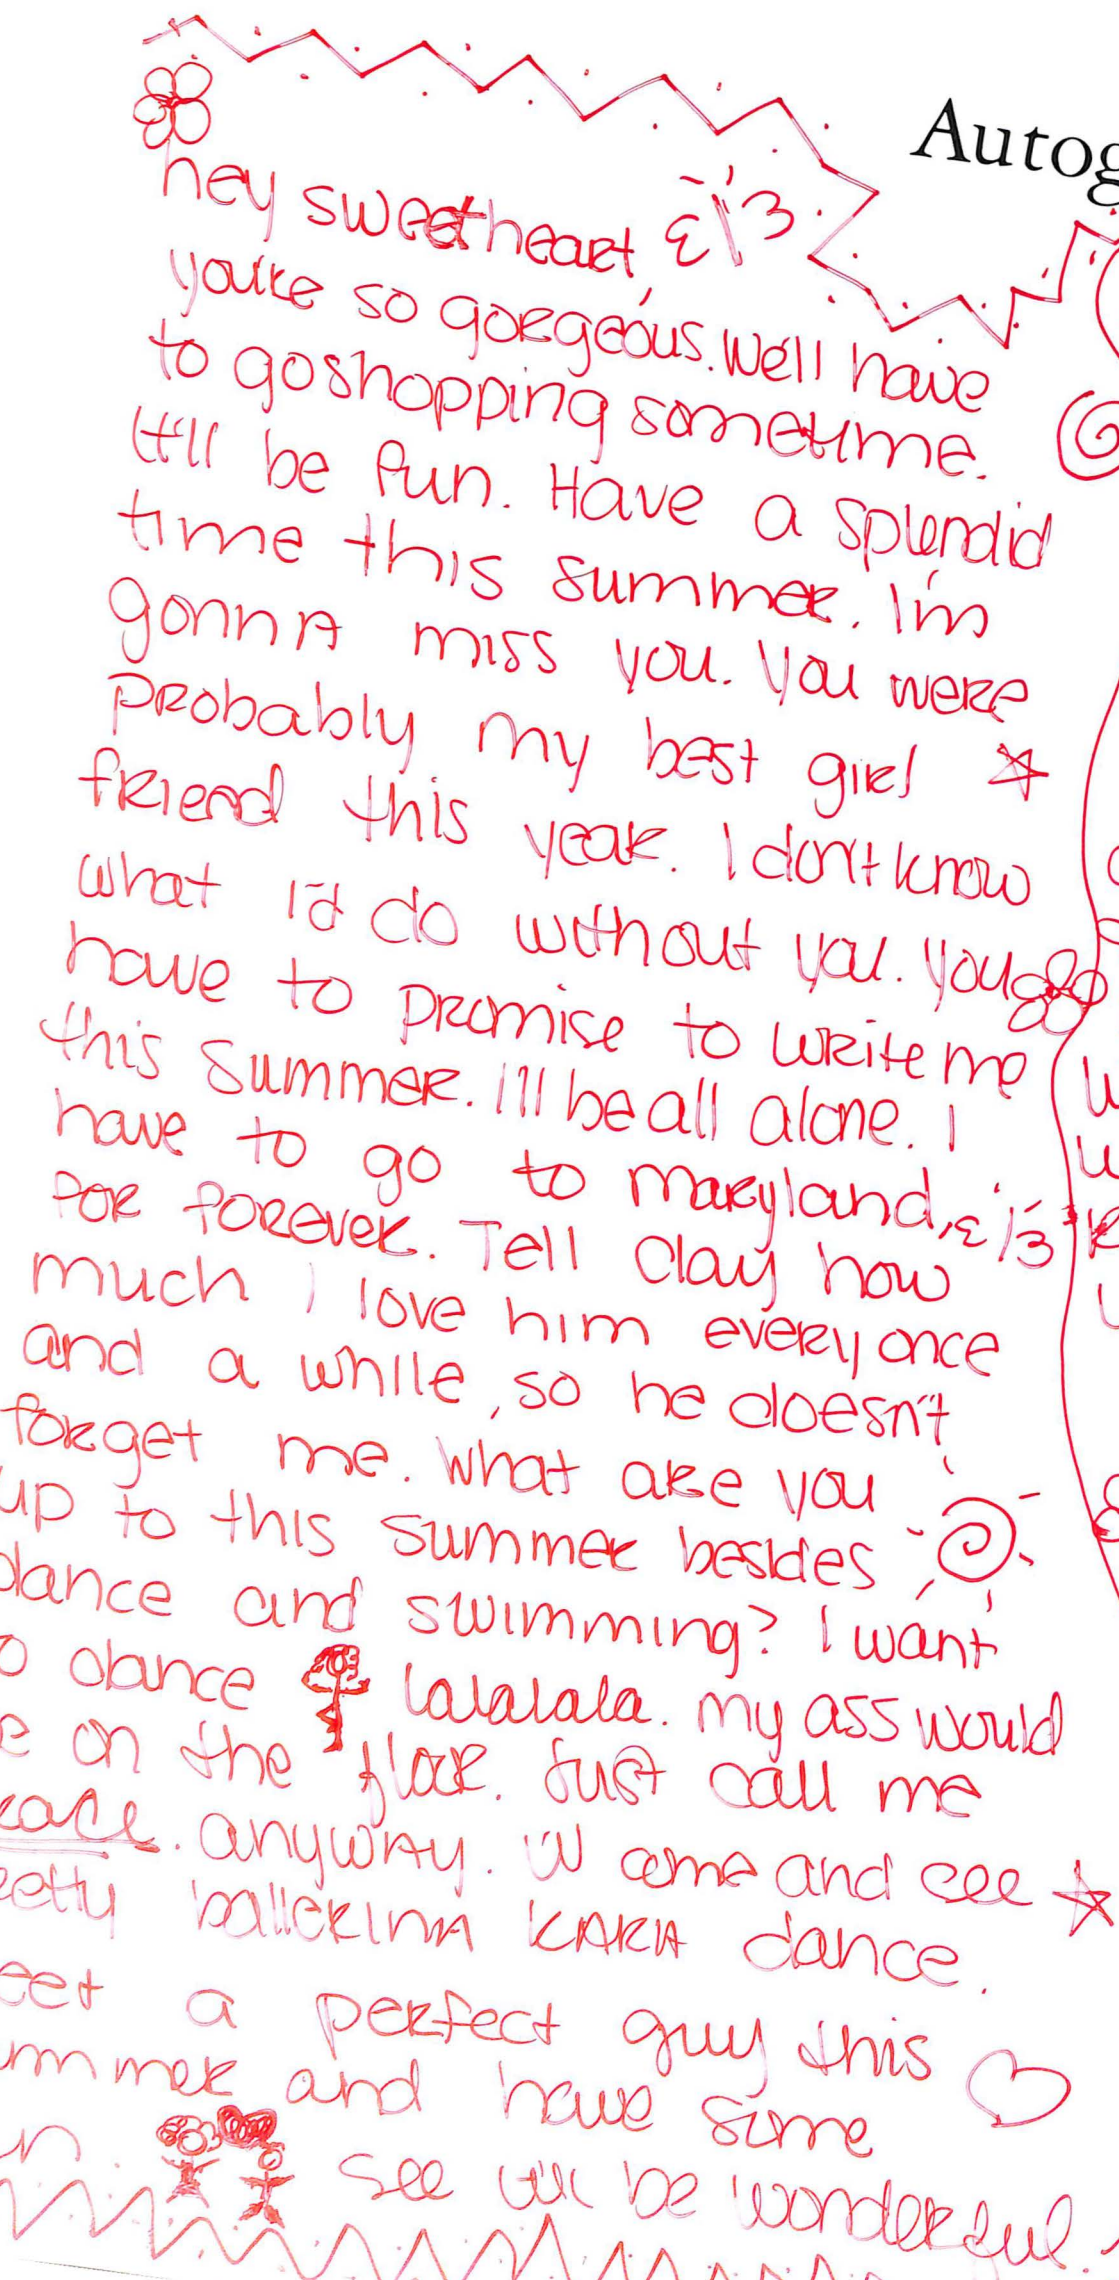 Autog
hey sweetheart,
you're so gorgeous. We'll have
to go shopping sometime.
It'll be fun. Have a splendid
time this summer. I'm
gonna miss you. You were
probably my best girl
friend this year. I don't know
what I'd do without you. You
have to promise to write me
this summer. I'll be all alone. I
have to go to Maryland,
for forever. Tell Clay how
much I love him every once
and a while, so he doesn't
forget me. What are you
up to this summer besides
dance and swimming? I want
o dance lalalala. My ass would
e on the floor. Just call me
race. anyway. I'll come and see
retty ballerina KARA dance.
eet a perfect guy this
mmer and have some
n. See it'll be wonderful.